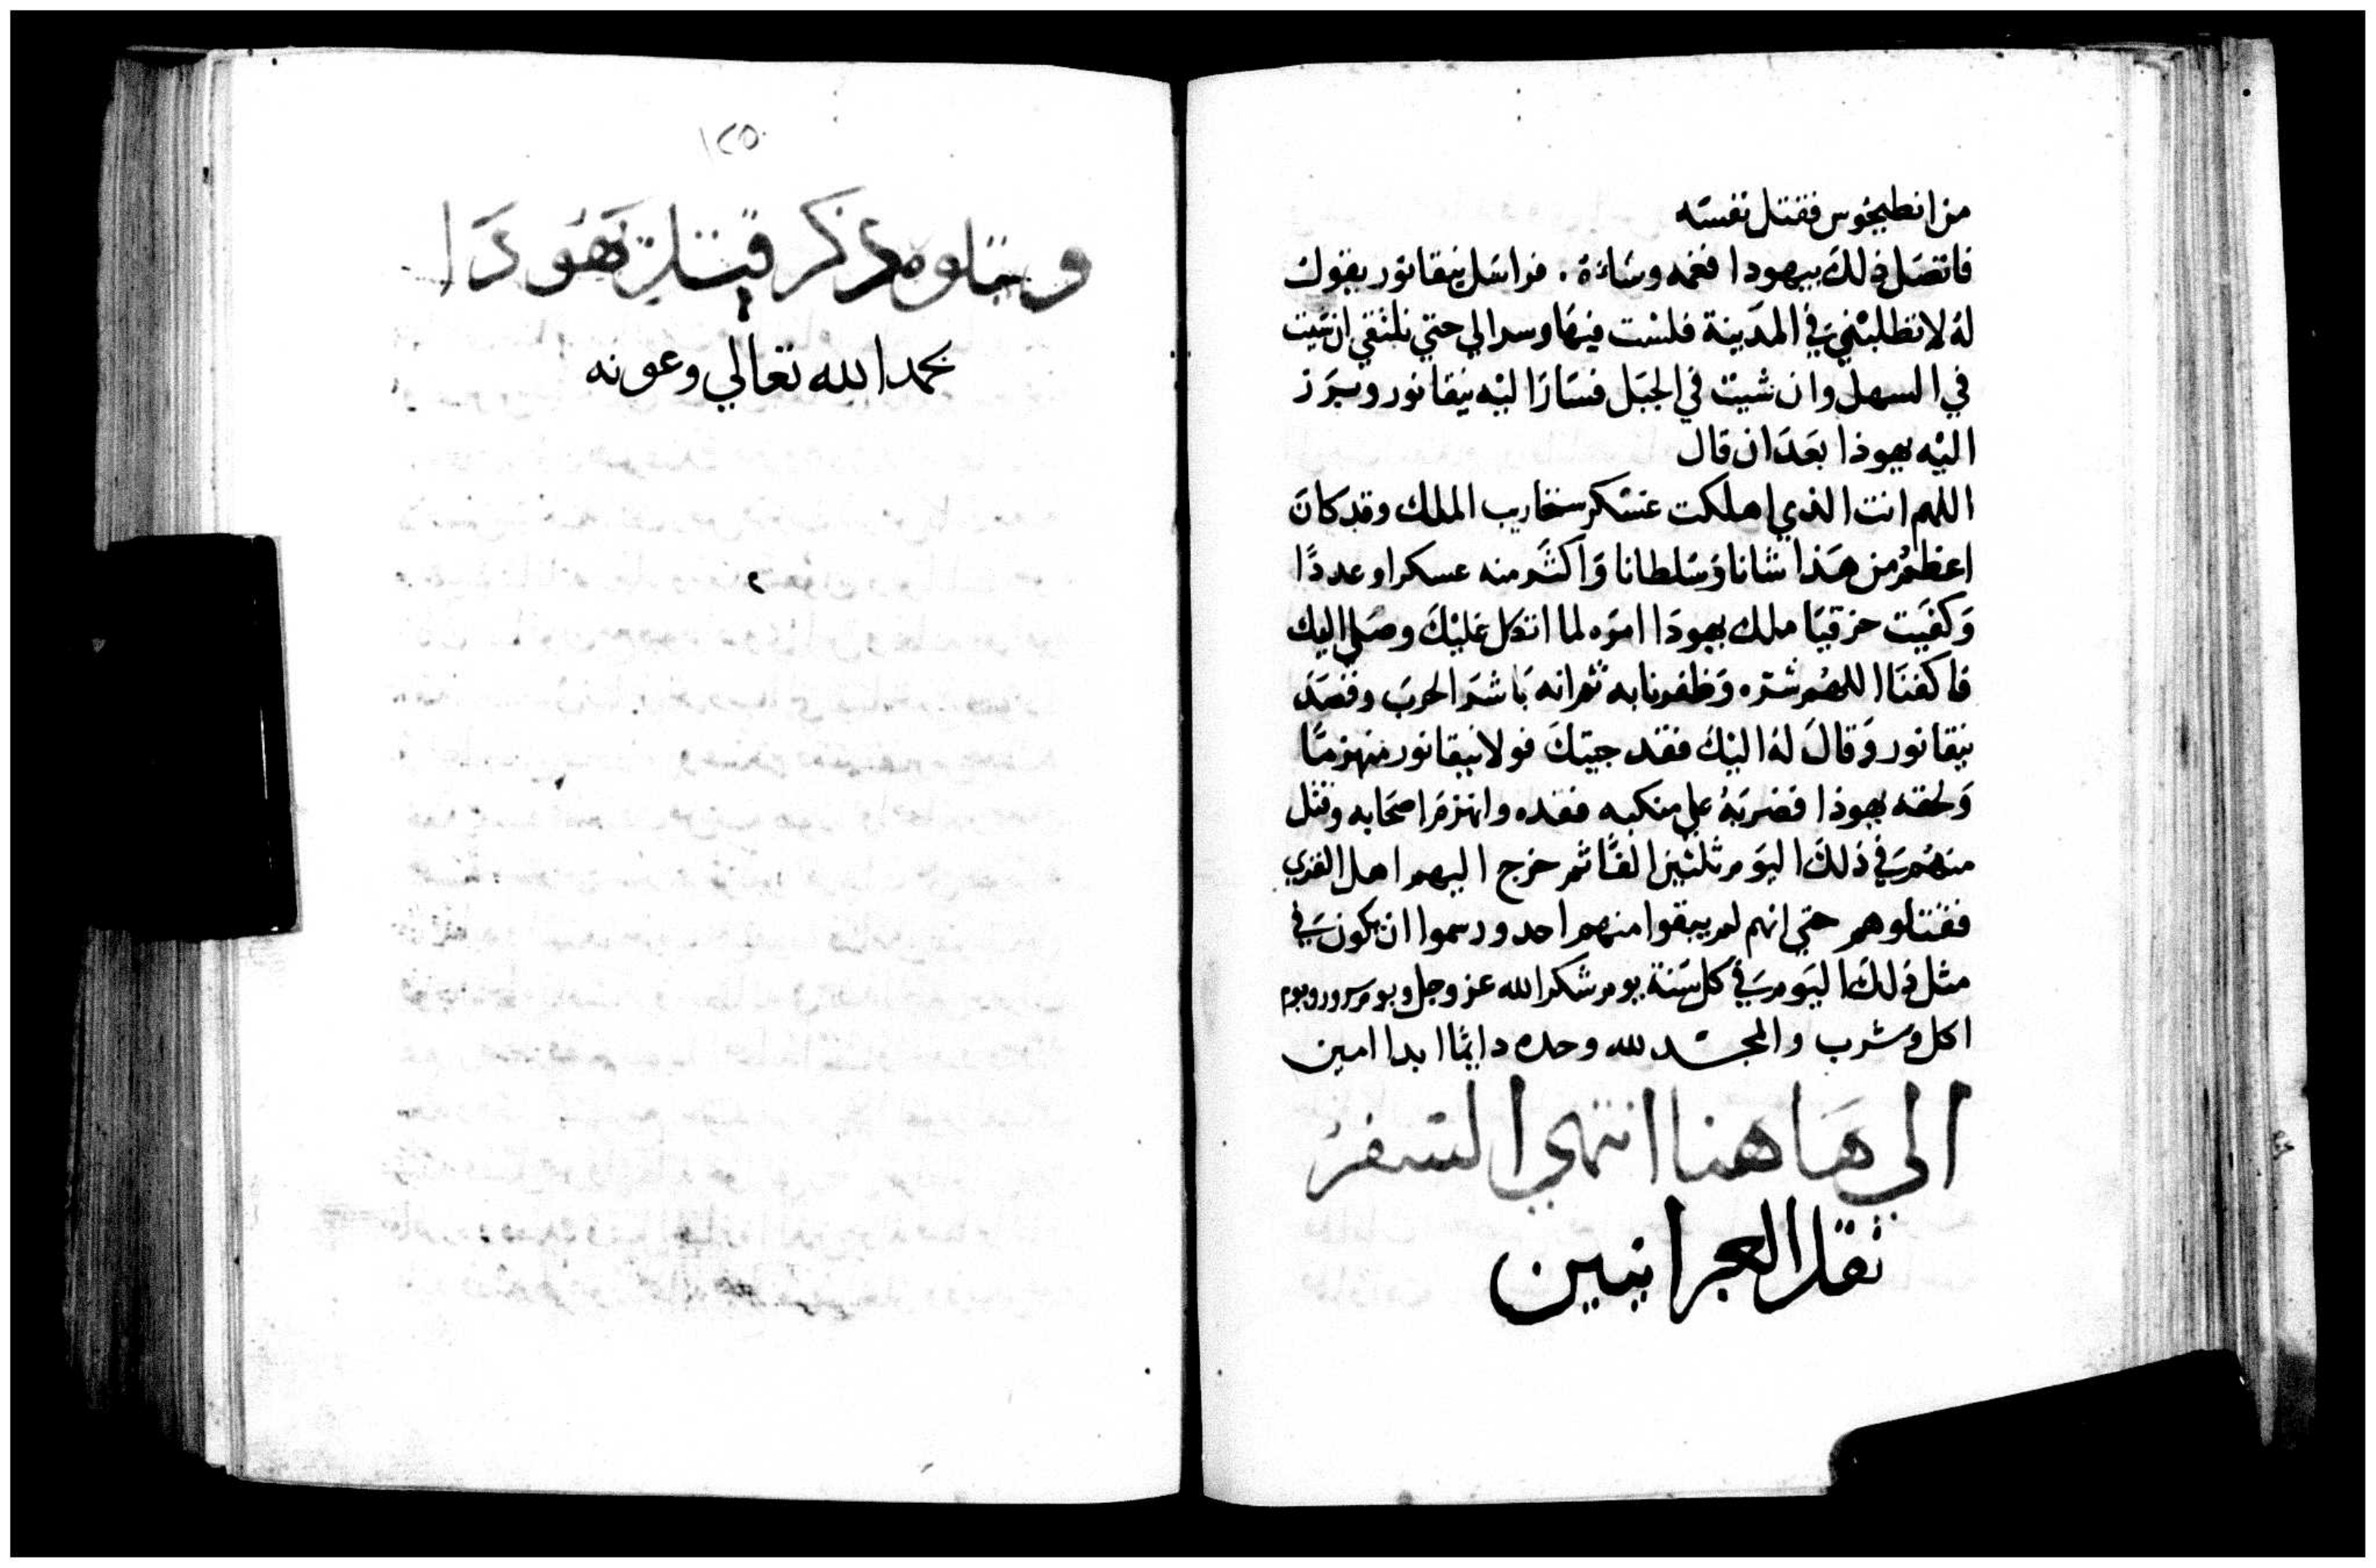 من انطيخوس فقتل نفسه
فاتصل ذلك بيهودا فغمه وساءه . فراسل نيقانور يقول
له لا تطلبني في المدينة فلست فيها وسر الي حتي نلتقي ان شيت
في السهل وان شيت في الجبل فسار اليه نيقانور وبرز
اليه يهوذا بعد ان قال
اللهم انت الذي اهلكت عسكر سنحاريب الملك وقد كان
اعظم من هذا شانا وسلطانا واكثر منه عسكرا وعددا
وكفيت حزقيا ملك يهودا امره لما اتكل عليك وصلي اليك
فاكفنا اللهم شره وظفرنا به ثم انه باشر الحرب وقصد
نيقانور وقال له اليك فقد جيتك فولا نيقانور منهزما
ولحقه يهوذا فضربه علي منكبه فقده وانهزم اصحابه وقتل
منهم في ذلك اليوم ثلثين الفا ثم خرج اليهم اهل القري
فقتلوهم حتي انهم لم يبقوا منهم احد ورسموا ان يكون في
مثل ذلك اليوم في كل سنة يوم شكر الله عز وجل ويوم سرور ويوم
اكل وشرب والمجد لله وحده دايما ابدا امين
الي هاهنا انتهي السفر
نقل العبرانيين
١٢٥
ويتلوه ذكر قتلة يهودا
بحمد الله تعالي وعونه